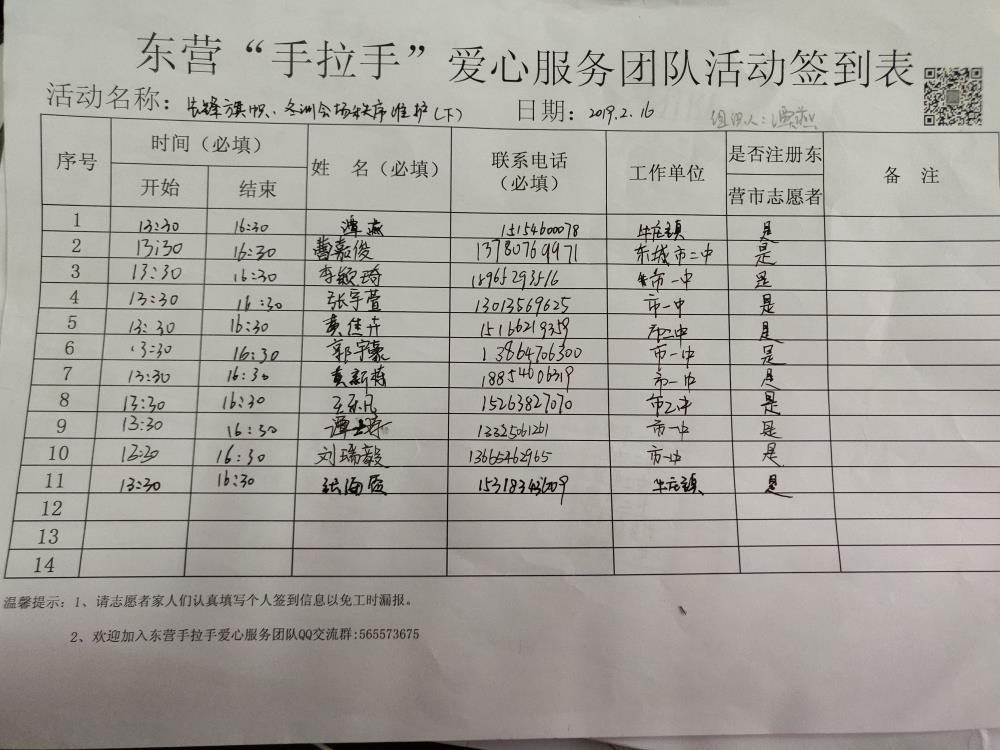 东营“手拉手”爱心服务团队活动签到表
活动名称：长锋旗帜、冬训会场秩序维护（下） 日期：2019.2.16 组织人：谭燕
序号 时间（必填） 姓 名（必填） 联系电话（必填） 工作单位 是否注册东营市志愿者 备 注
开始 结束
1 13:30 16:30 谭燕 15154600078 牛庄镇 是
2 13:30 16:30 曹嘉俊 13780769971 东城市二中 是
3 13:30 16:30 李颖琦 18965293516 市一中 是
4 13:30 16:30 张宇萱 13013569625 市一中 是
5 13:30 16:30 黄佳卉 15166219359 市二中 是
6 13:30 16:30 郭宇豪 13864706300 市一中 是
7 13:30 16:30 黄新蒋 18854606319 市一中 是
8 13:30 16:30 王乐凡 15263827070 市二中 是
9 13:30 16:30 谭 13325061261 市一中 是
10 13:30 16:30 刘瑞毅 13665462965 市一中 是
11 13:30 16:30 张海霞 15318343609 牛庄镇 是
12
13
14
温馨提示：1、请志愿者家人们认真填写个人签到信息以免工时漏报。
2、欢迎加入东营手拉手爱心服务团队QQ交流群:565573675